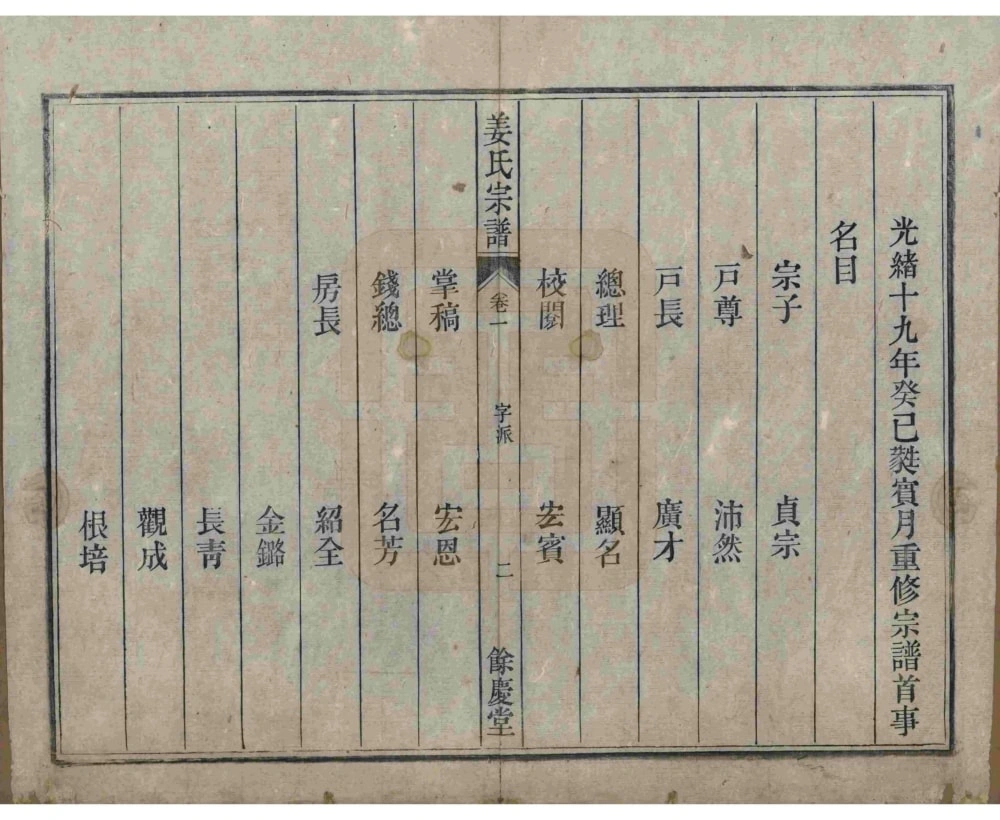 光緒十九年癸巳蕤賓月重修宗譜首事
名目
宗子 貞宗
戸尊 沛然
戸長 廣才
總理 顯名
校閱 宏賓
姜氏宗譜 卷一 字派 二 餘慶堂
掌稿 宏恩
錢總 名芳
房長 紹全
金鏴
長靑
觀成
根培